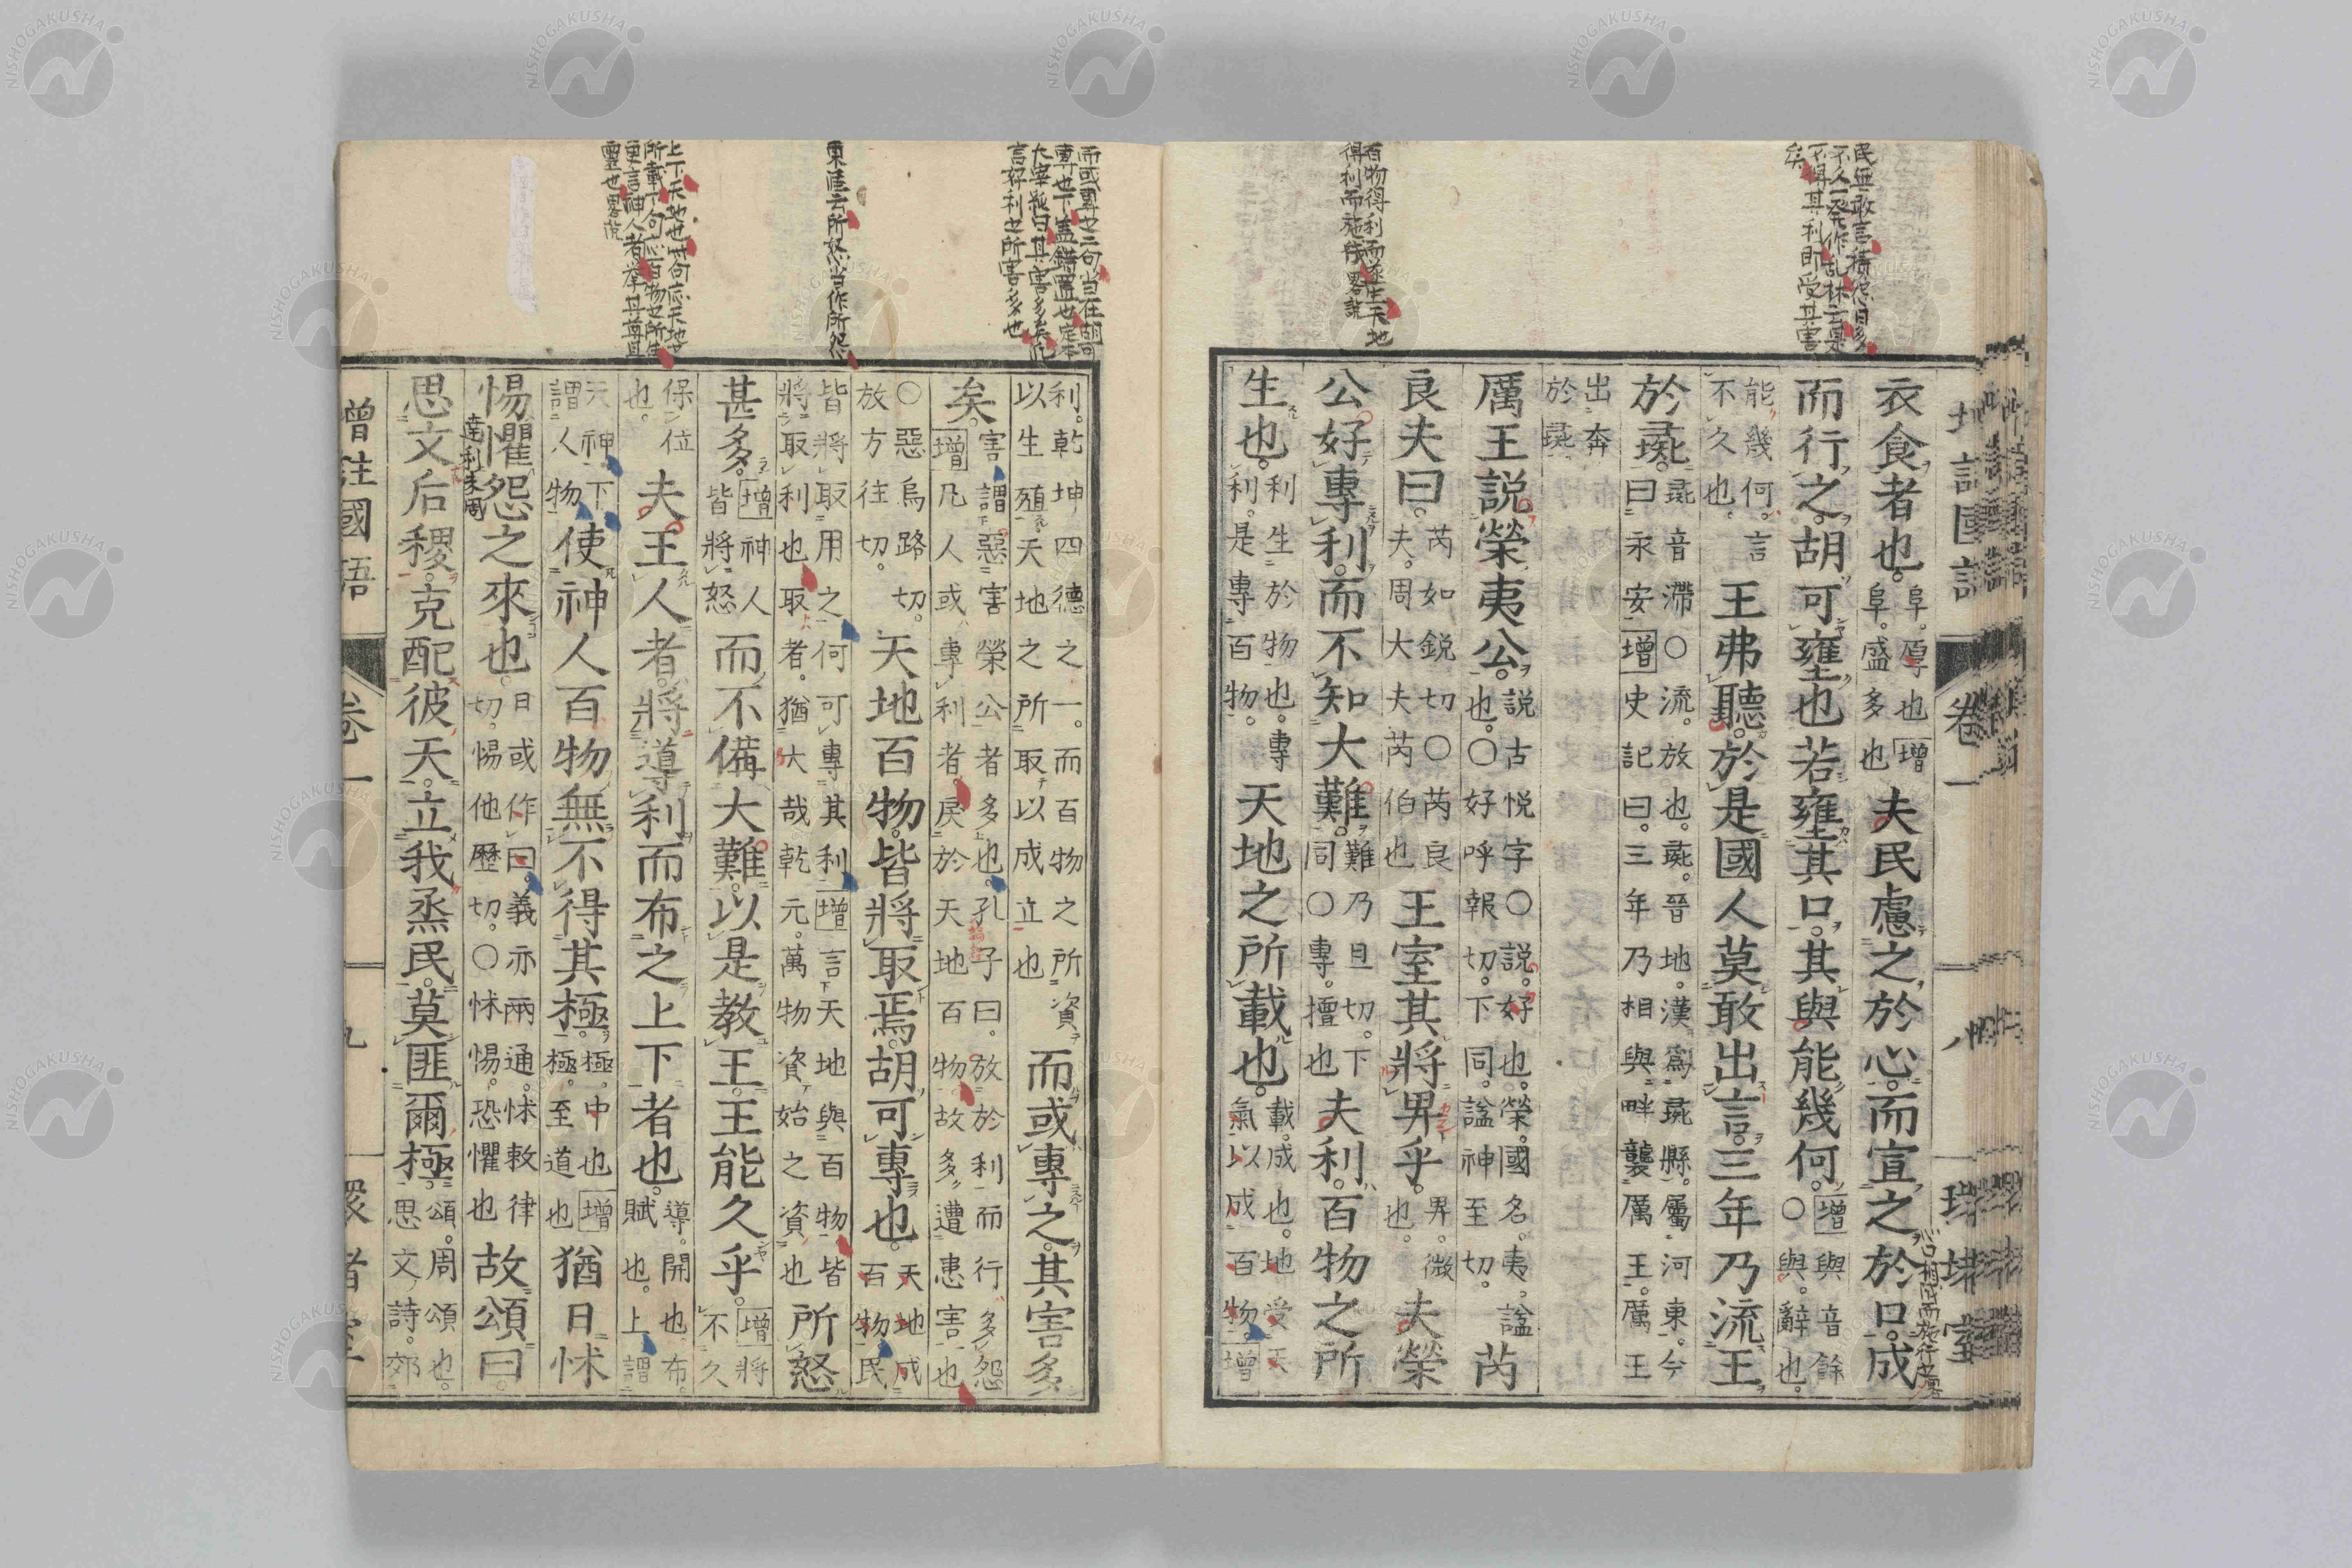 民無敢言積怨日多
不久一発作乱林云是
不得其利即受其害
矣
百物得利而遂生天地
得利而施成 畧説
卷一
衣食者也。阜。厚也增阜。盛多也夫民慮之於心。而宣之於口。成
而行之。胡可壅也若壅其口。其與能幾何。增與音餘〇與。辭也。
能幾何。言不久也。王弗聽。於是國人莫敢出言。三年乃流王
於彘。彘音滯〇流。放也。彘。晉地。漢爲彘縣。屬河東。今曰永安增史記曰。三年乃相與畔襲厲王。厲王
出奔於彘
厲王説榮夷公。説古悅字〇説。好也。榮。國名。夷。謚也。〇好呼報切。下同。謚神至切。芮
良夫曰。芮如銳切〇芮良夫。周大夫芮伯也王室其將卑乎。卑。微也。夫榮
公好專利。而不知大難。難乃旦切。下同〇專。擅也夫利。百物之所
生也。利生於物也。專利。是專百物。天地之所載也。載。成也。地受天氣以成百物。增
而或專也二句当在胡可
專也下盖錯置也定本
大宰純曰其害多矣作
言好利也所害多也
東涯云所怒当作所怨
上下天地也此句応天地
所載下句応百物也所生
更言神人者挙其尊且
靈也畧説
利。乾坤四德之一。而百物之所資以生殖。天地之所取以成立也而或專之。其害多
矣。害謂惡害榮公者多也。孔子曰。放於利而行多怨增凡人或專利者。戾於天地百物。故多遭患害也
〇惡烏路切。放方往切。天地百物。皆將取焉。胡可專也。天地成百物。民
皆將取用之何可專其利增言天地與百物皆將取利也取者。猶大哉乾元。萬物資始之資也所怒
甚多。增神人皆將怒而不備大難。以是教王。王能久乎。增將不久
保位也。夫王人者。將導利而布之上下者也。導。開也布。賦也。上謂
天神下謂人物使神人百物無不得其極。極。中也增極。至道也猶日怵
惕懼怨之來也。日或作曰。義亦兩通。怵敕律切。惕他歷切。〇怵惕。恐懼也故頌曰。
思文后稷。克配彼天。立我烝民。莫匪爾極。頌。周頌也。思文詩。郊
增注國語 卷一 九
NISHOGAKUSHA